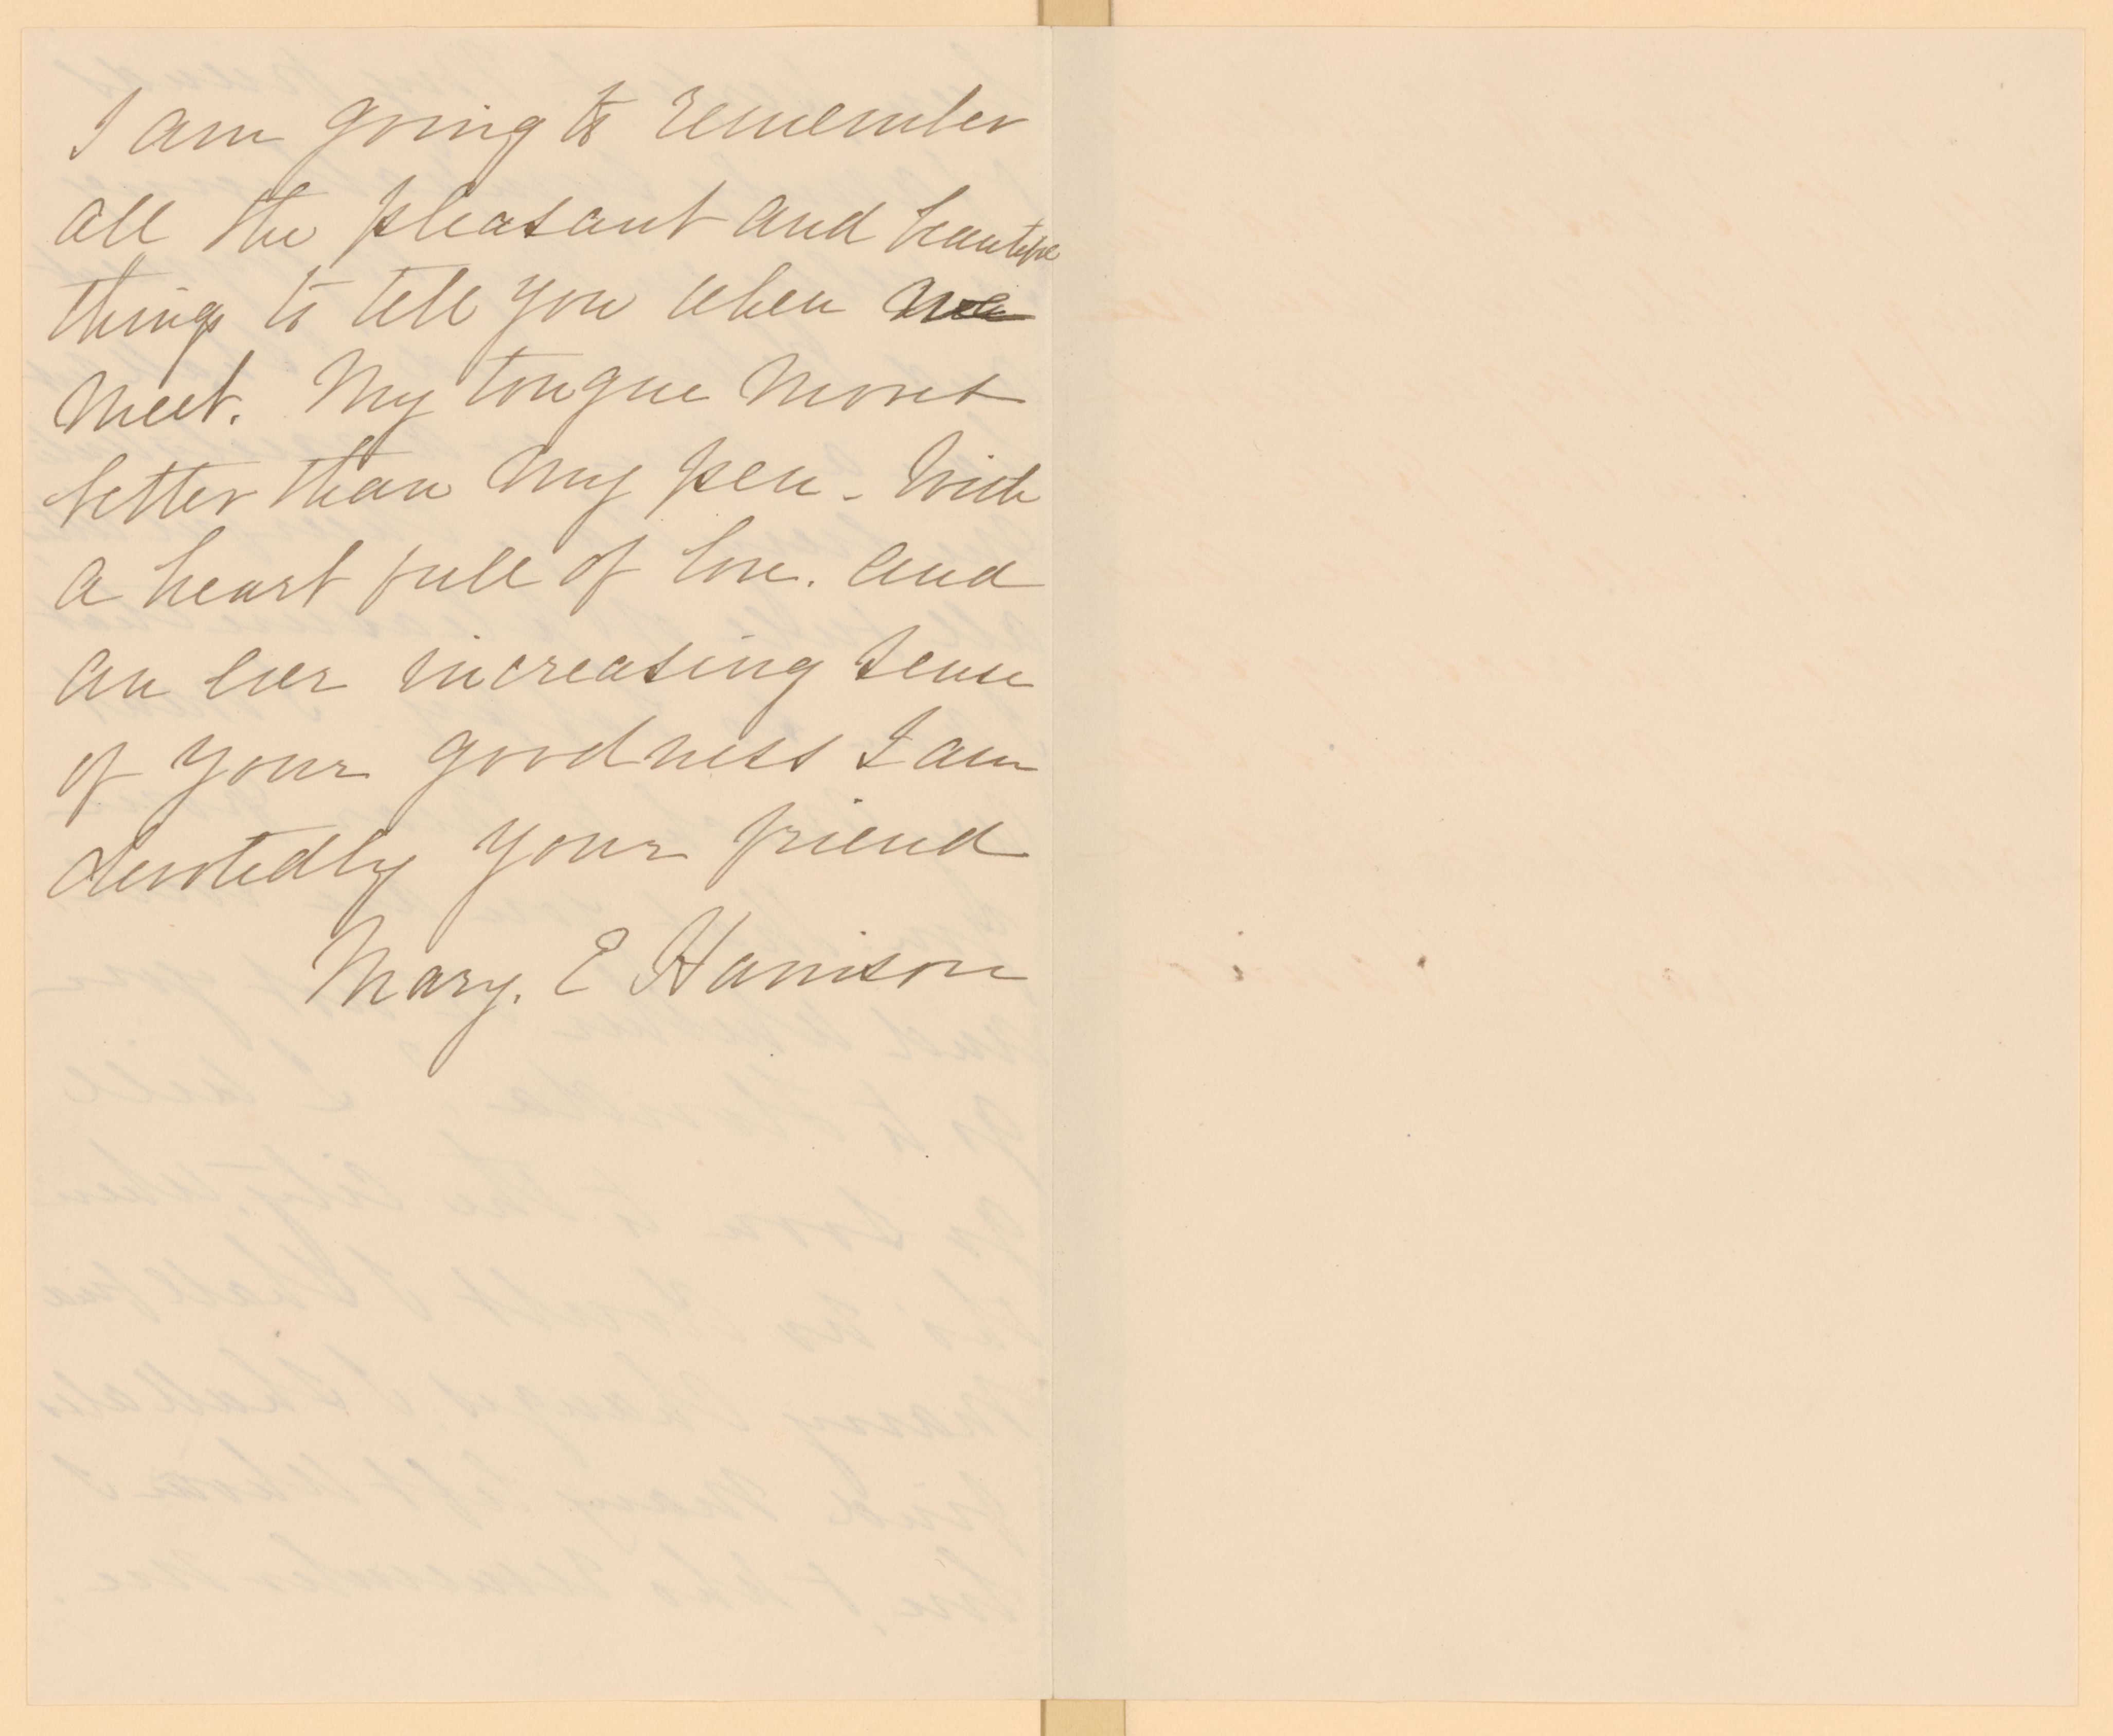 I am going to remember
all the pleasant and beautiful
things to tell you when we
meet. My tongue moves
better than my pen - With
a heart full of love. and
an ever increasing sense
of your goodness I am
devotedly your friend
Mary. E Harrison